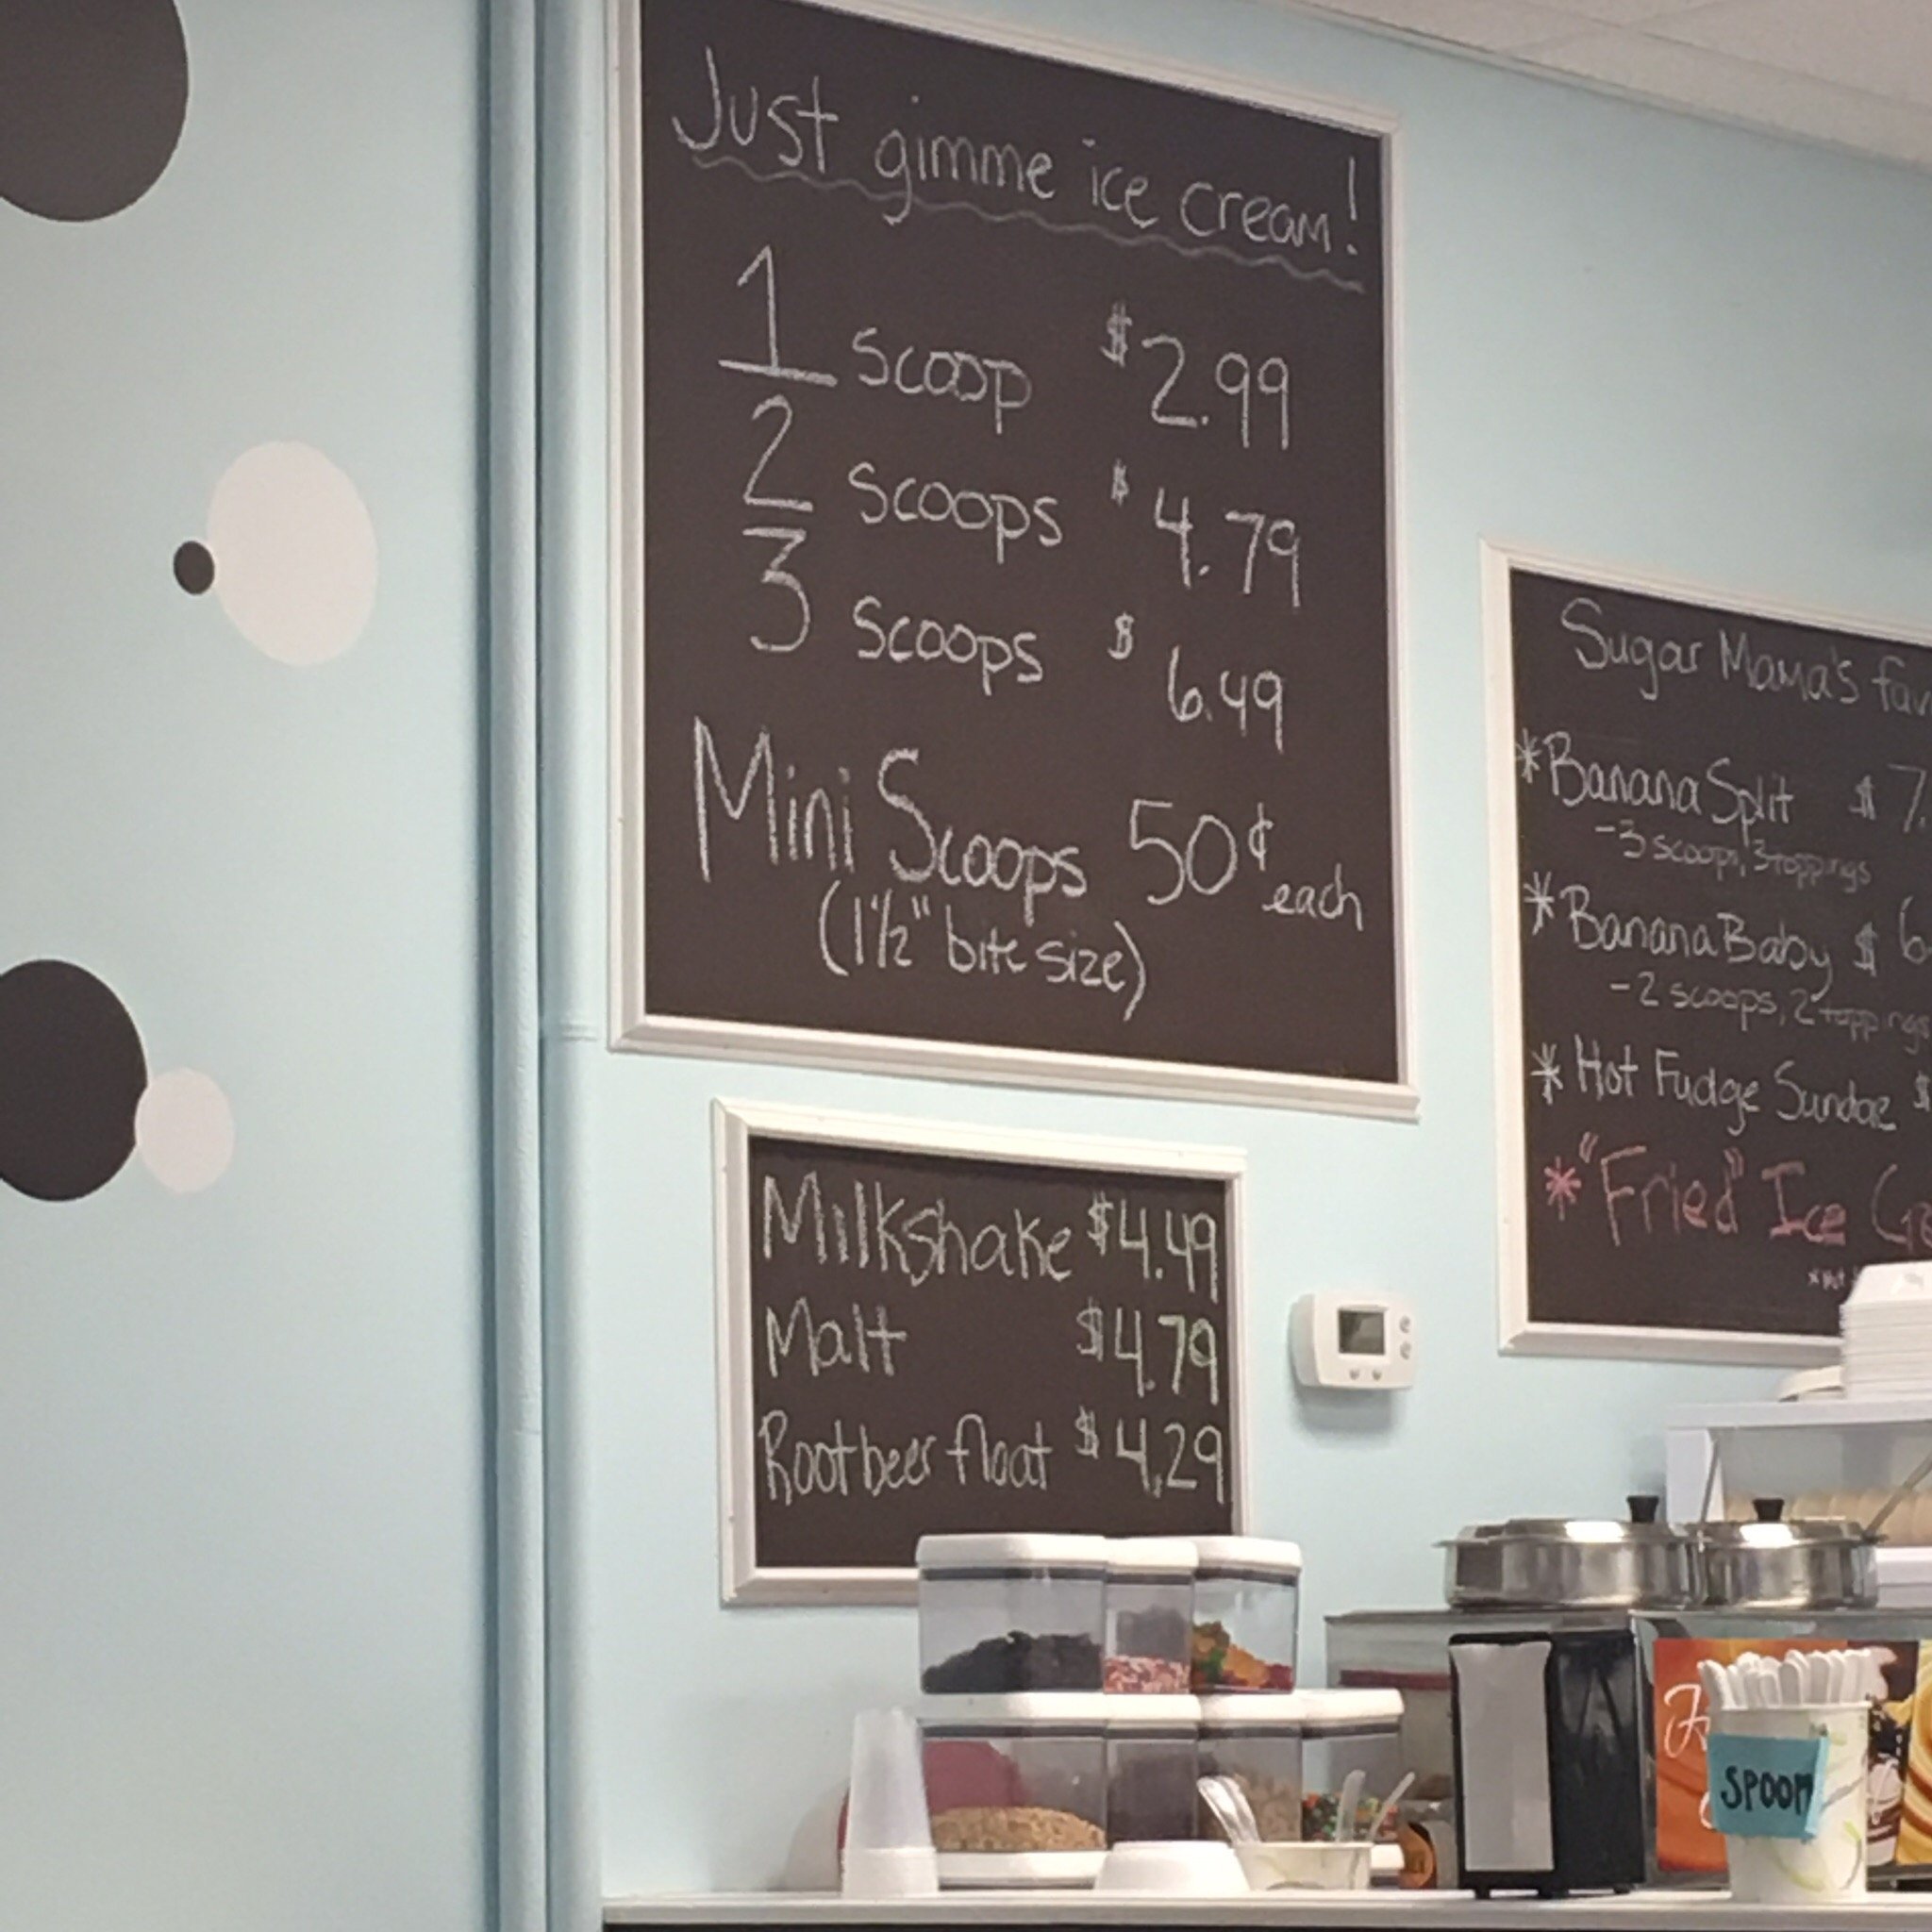 Just gimme ice cream!
1 scoop $2.99
2 scoops $4.79
3 scoops $6.49
Mini Scoops 50¢ each
(1½" bite size)
Milkshake $4.49
Malt $4.79
Rootbeer float $4.29
Sugar Mama's fav
*Banana Split $7.
-3 scoops, 3 toppings
*Banana Baby $6
-2 scoops, 2 toppings
*Hot Fudge Sundae $
*"Fried" Ice Cre
SPOON